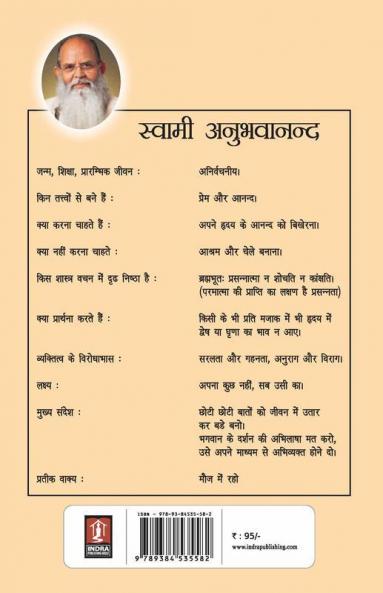 स्वामी अनुभवानन्द
जन्म, शिक्षा, प्रारम्भिक जीवन : अनिर्वचनीय।
किन तत्त्वों से बने हैं : प्रेम और आनन्द।
क्या करना चाहते हैं : अपने हृदय के आनन्द को बिखेरना।
क्या नहीं करना चाहते : आश्रम और चेले बनाना।
किस शास्त्र वचन में दृढ निष्ठा है : ब्रह्मभूतः प्रसन्नात्मा न शोचति न कांक्षति।
(परमात्मा की प्राप्ति का लक्षण है प्रसन्नता)
क्या प्रार्थना करते हैं : किसी के भी प्रति मजाक में भी हृदय में
द्वेष या घृणा का भाव न आए।
व्यक्तित्व के विरोधाभास : सरलता और गहनता, अनुराग और विराग।
लक्ष्य : अपना कुछ नहीं, सब उसी का।
मुख्य संदेश : छोटी छोटी बातों को जीवन में उतार
कर बडे बनो।
भगवान के दर्शन की अभिलाषा मत करो,
उसे अपने माध्यम से अभिव्यक्त होने दो।
प्रतीक वाक्य : मौज में रहो
INDRA
PUBLISHING HOUSE
ISBN - 978-93-84535-58-2
9 789384 535582
₹ : 95/-
www.indrapublishing.com